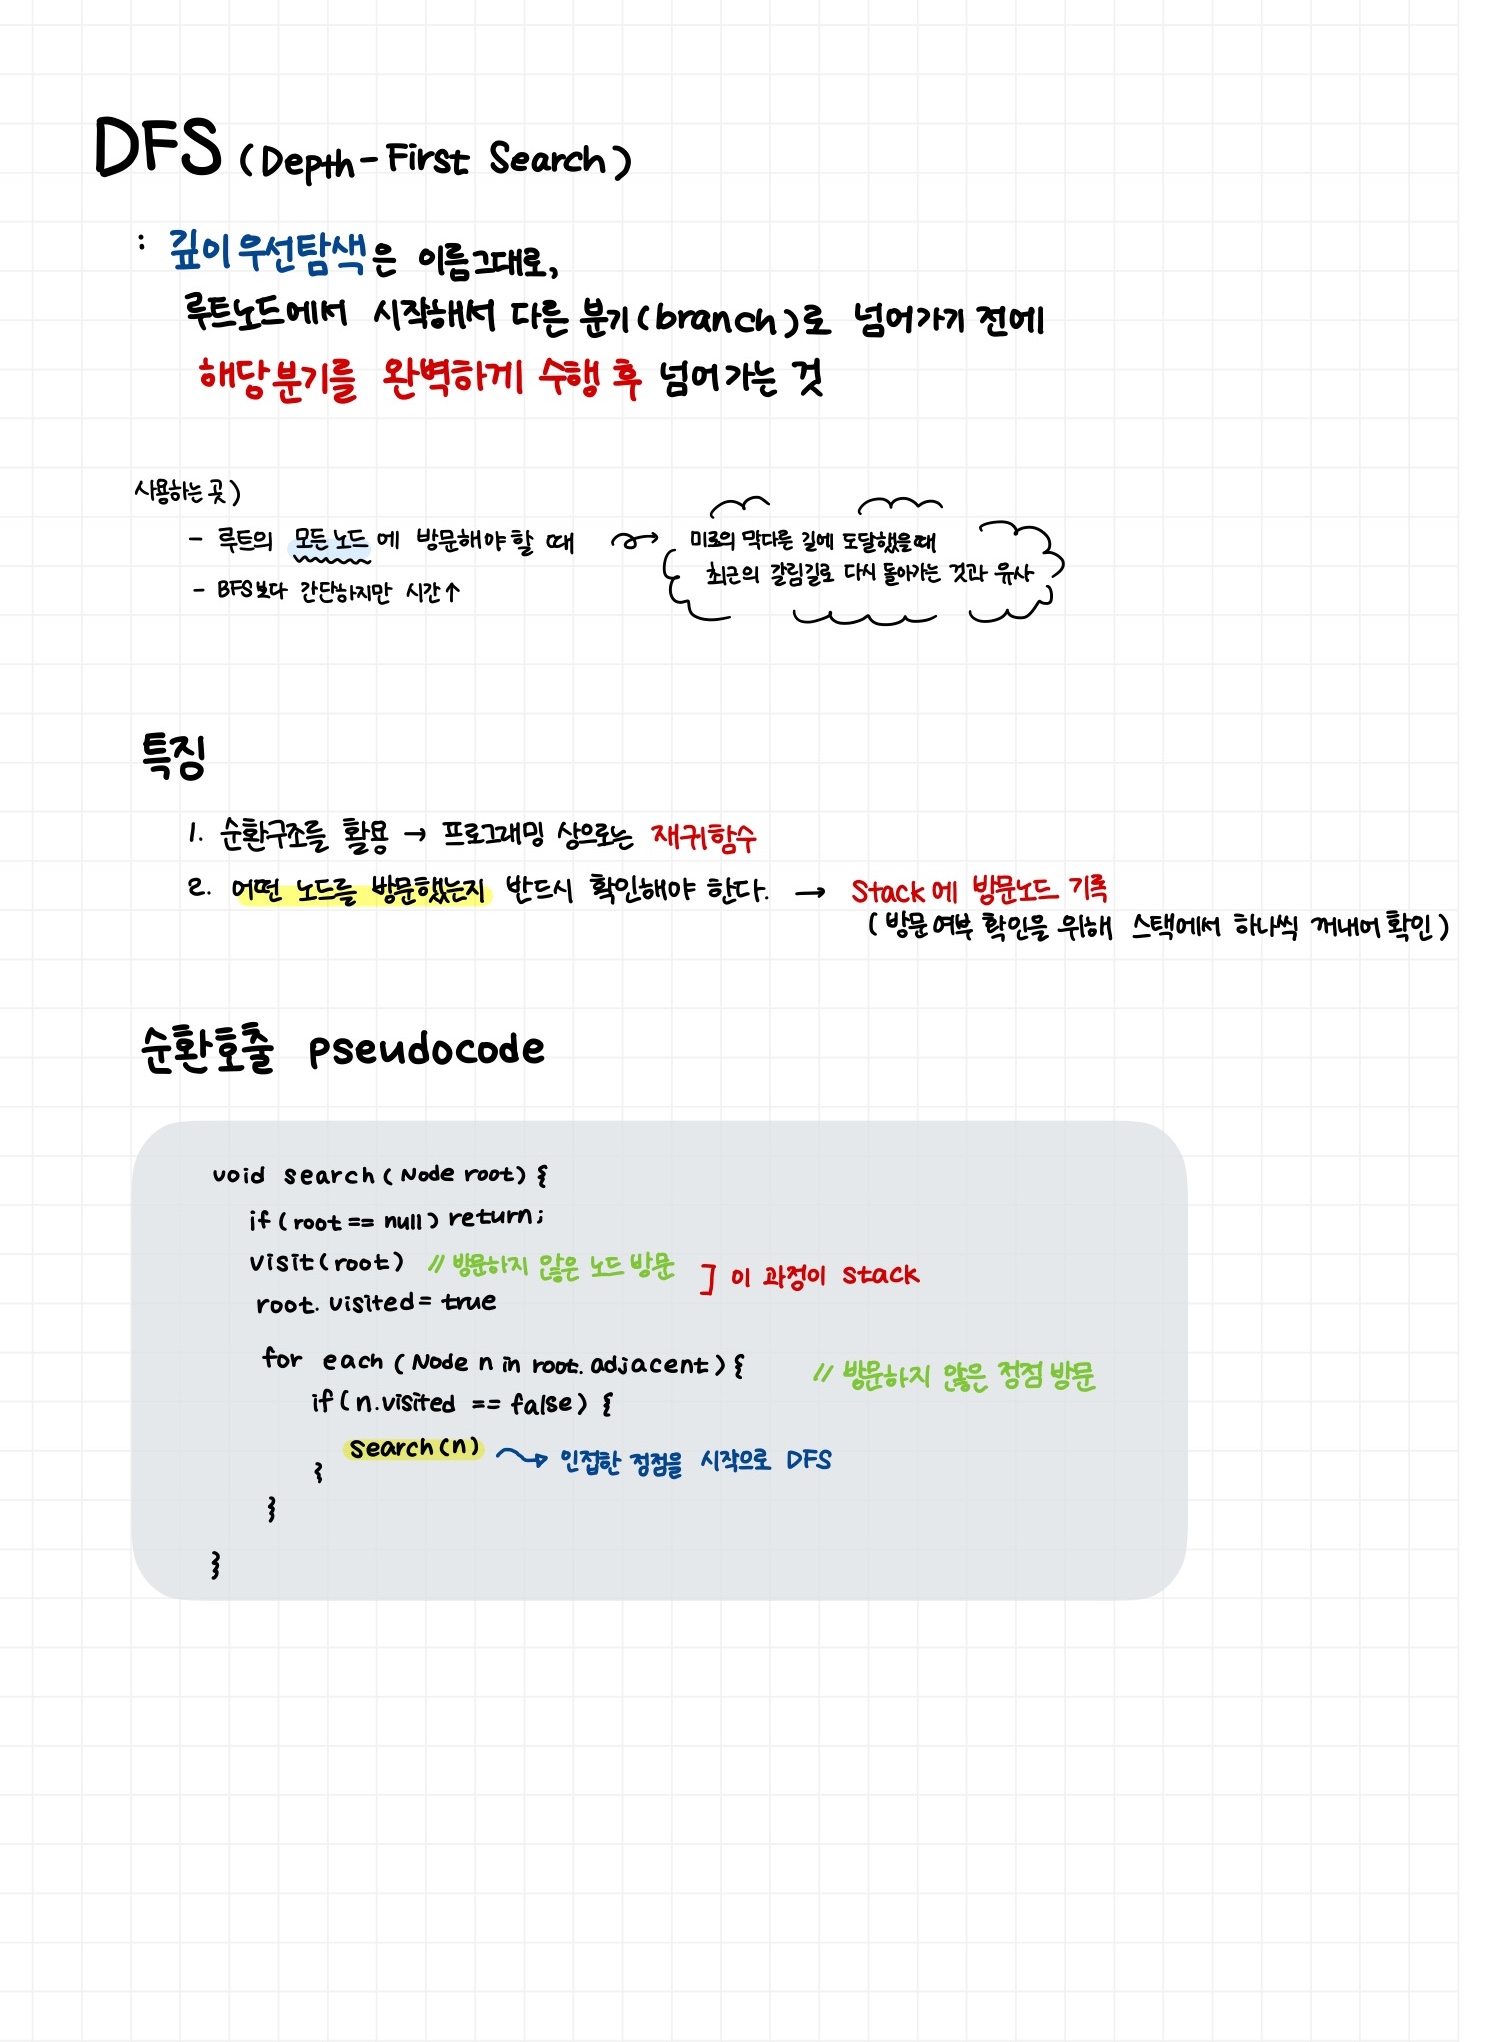 DFS (Depth-First Search)
: 깊이우선탐색은 이름그대로,
루트노드에서 시작해서 다른 분기(branch)로 넘어가기 전에
해당분기를 완벽하게 수행 후 넘어가는 것
사용하는 곳)
- 루트의 모든 노드에 방문해야 할 때
미로의 막다른 길에 도달했을때
최근의 갈림길로 다시 돌아가는 것과 유사
- BFS보다 간단하지만 시간↑
특징
1. 순환구조를 활용 → 프로그래밍 상으로는 재귀함수
2. 어떤 노드를 방문했는지 반드시 확인해야 한다. → Stack에 방문노드 기록
(방문여부 확인을 위해 스택에서 하나씩 꺼내어 확인)
순환호출 pseudocode
void search (Node root) {
if (root == null) return;
visit(root) // 방문하지 않은 노드 방문 ] 이 과정이 stack
root. visited = true
for each (Node n in root. adjacent) { // 방문하지 않은 정점 방문
if (n.visited == false) {
search(n) → 인접한 정점을 시작으로 DFS
}
}
}